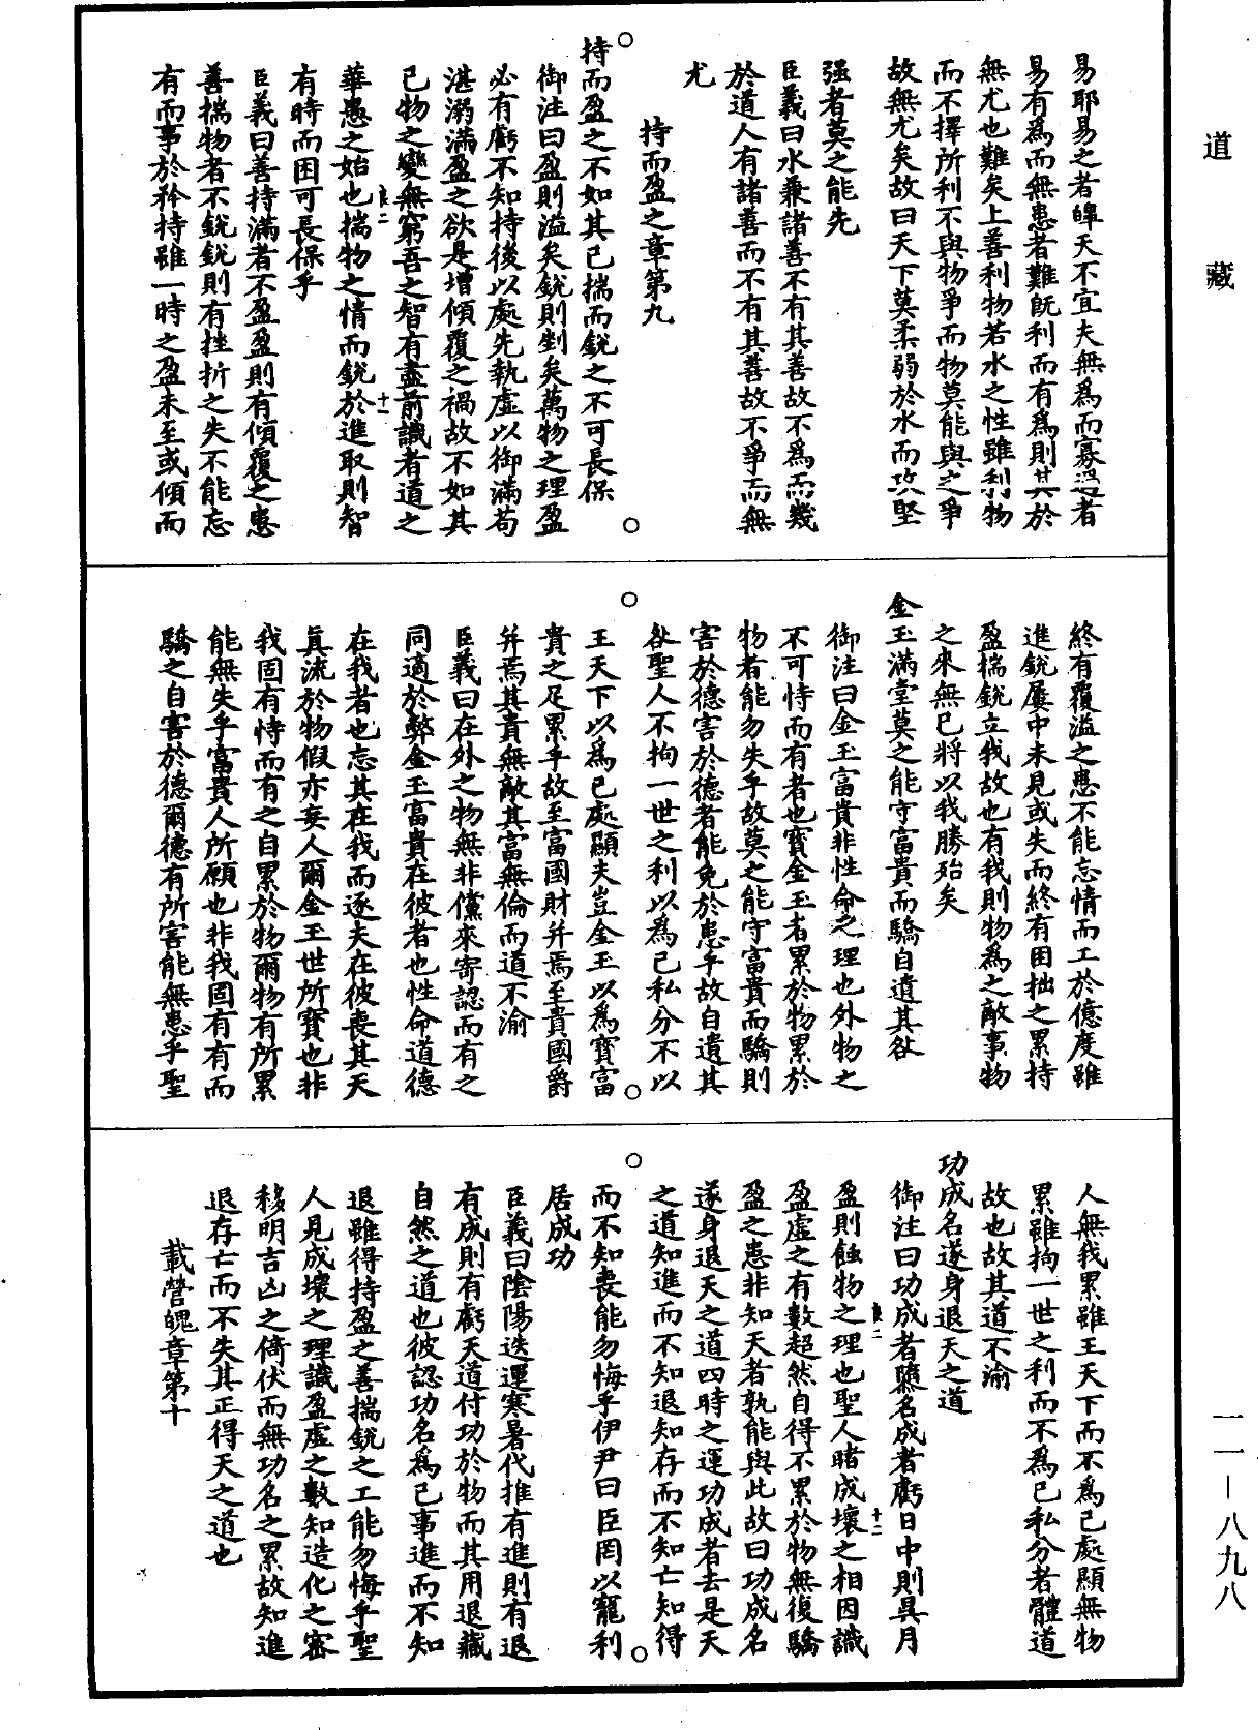 道藏
易耶易之者皞天不宜夫無爲而寡過者
易有爲而無患者難旣利而有爲則其於
無尤也難矣上善利物若水之性雖利物
而不擇所利不與物爭而物莫能與之爭
故無尤矣故曰天下莫柔弱於水而攻堅
强者莫之能先
臣義曰水兼諸善不有其善故不爲而幾
於道人有諸善而不有其善故不爭而無
尤
持而盈之章第九
持而盈之不如其已揣而銳之不可長保
御注曰盈則溢矣銳則剉矣萬物之理盈
必有虧不知持後以處先執虛以御滿苟
湛溺滿盈之欲是增傾覆之禍故不如其
已物之變無窮吾之智有盡前識者道之
華愚之始也揣物之情而銳於進取則智
有時而困可長保乎
臣義曰善持滿者不盈盈則有傾覆之患
善揣物者不銳銳則有挫折之失不能忘
有而事於矜持雖一時之盈未至或傾而
終有覆溢之患不能忘情而工於億度雖
進銳屢中未見或失而終有困拙之累持
盈揣銳立我故也有我則物爲之敵事物
之來無已將以我勝殆矣
金玉滿堂莫之能守富貴而驕自遺其咎
御注曰金玉富貴非性命之理也外物之
不可恃而有者也寶金玉者累於物累於
物者能勿失乎故莫之能守富貴而驕則
害於德害於德者能免於患乎故自遺其
咎聖人不拘一世之利以爲己私分不以
王天下以爲己處顯夫豈金玉以爲寶富
貴之足累乎故至富國財并焉至貴國爵
并焉其貴無敵其富無倫而道不渝
臣義曰在外之物無非儻來寄認而有之
同適於弊金玉富貴在彼者也性命道德
在我者也忘其在我而逐夫在彼喪其天
眞流於物假亦妄人爾金玉世所寶也非
我固有恃而有之自累於物爾物有所累
能無失乎富貴人所願也非我固有有而
驕之自害於德爾德有所害能無患乎聖
人無我累雖王天下而不爲己處顯無物
累雖拘一世之利而不爲己私分者體道
故也故其道不渝
功成名遂身退天之道
御注曰功成者隳名成者虧日中則昃月
盈則蝕物之理也聖人睹成壞之相因識
盈虛之有數超然自得不累於物無復驕
盈之患非知天者孰能與此故曰功成名
遂身退天之道四時之運功成者去是天
之道知進而不知退知存而不知亡知得
而不知喪能勿悔乎伊尹曰臣罔以寵利
居成功
臣義曰陰陽迭運寒暑代推有進則有退
有成則有虧天道付功於物而其用退藏
自然之道也彼認功名爲己事進而不知
退雖得持盈之善揣銳之工能勿悔乎聖
人見成壞之理識盈虛之數知造化之密
移明吉凶之倚伏而無功名之累故知進
退存亡而不失其正得天之道也
載營魄章第十
一一—八九八